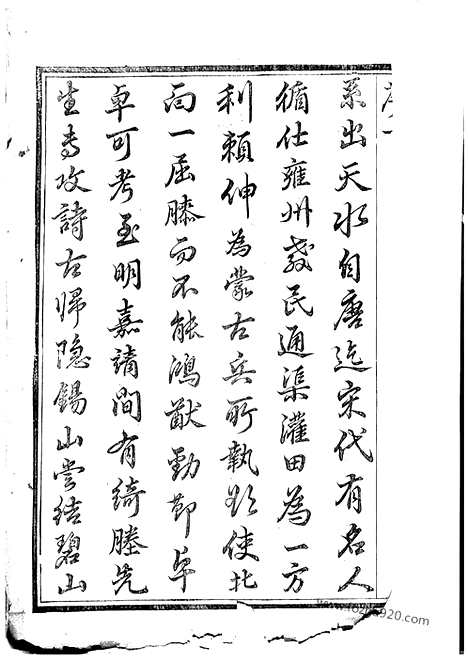 系出天水自唐迄宋代有名人
循仕雍州教民通渠灌田為一方
利賴伸為蒙古兵所執欲使北
面一屈膝而不能鴻猷勁節卓
卓可考至明嘉靖間有綺塍先
生專攻詩古歸隐錫山嘗结碧山
www.fozu8920.com